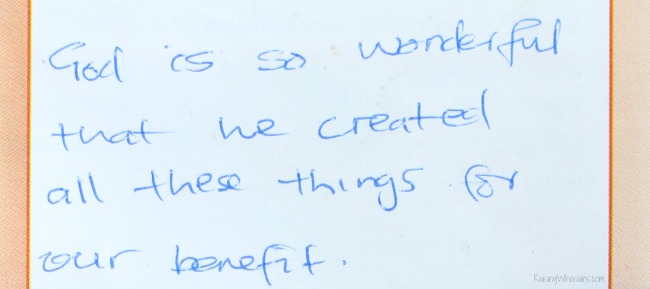 God is so wonderful
that he created
all these things for
our benefit.
RaisingWhasians.com